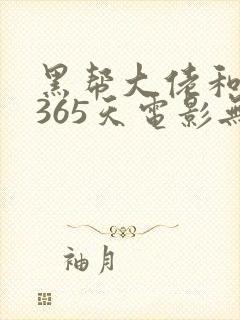 黑帮大佬和
365天電影無
袖月